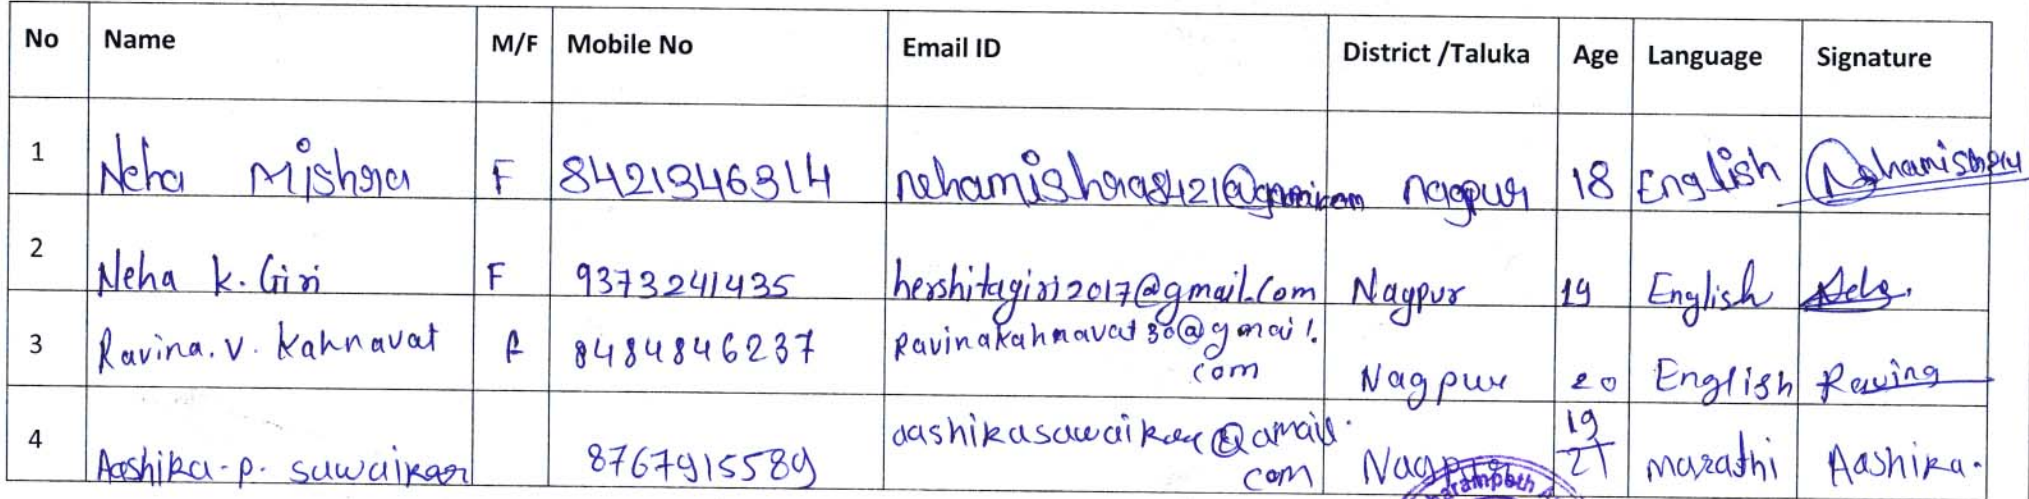 No Name M/F Mobile No Email ID District /Taluka Age Language Signature
1 Neha Mishra F 8421346314 nehamishra8421@gmail.com nagpur 18 English Nehamishra
2 Neha k. Giri F 9373241435 hershitagiri2017@gmail.com Nagpur 19 English
3 Ravina. v. Kahnavat F 8484846237 Ravinakahnavat30@gmail.
com Nagpur 20 English Ravina
4 Aashika. p. sawaikar 8767915589 aashikasawaikar@gmail.
com Nagpur 19
21 marathi Aashika.